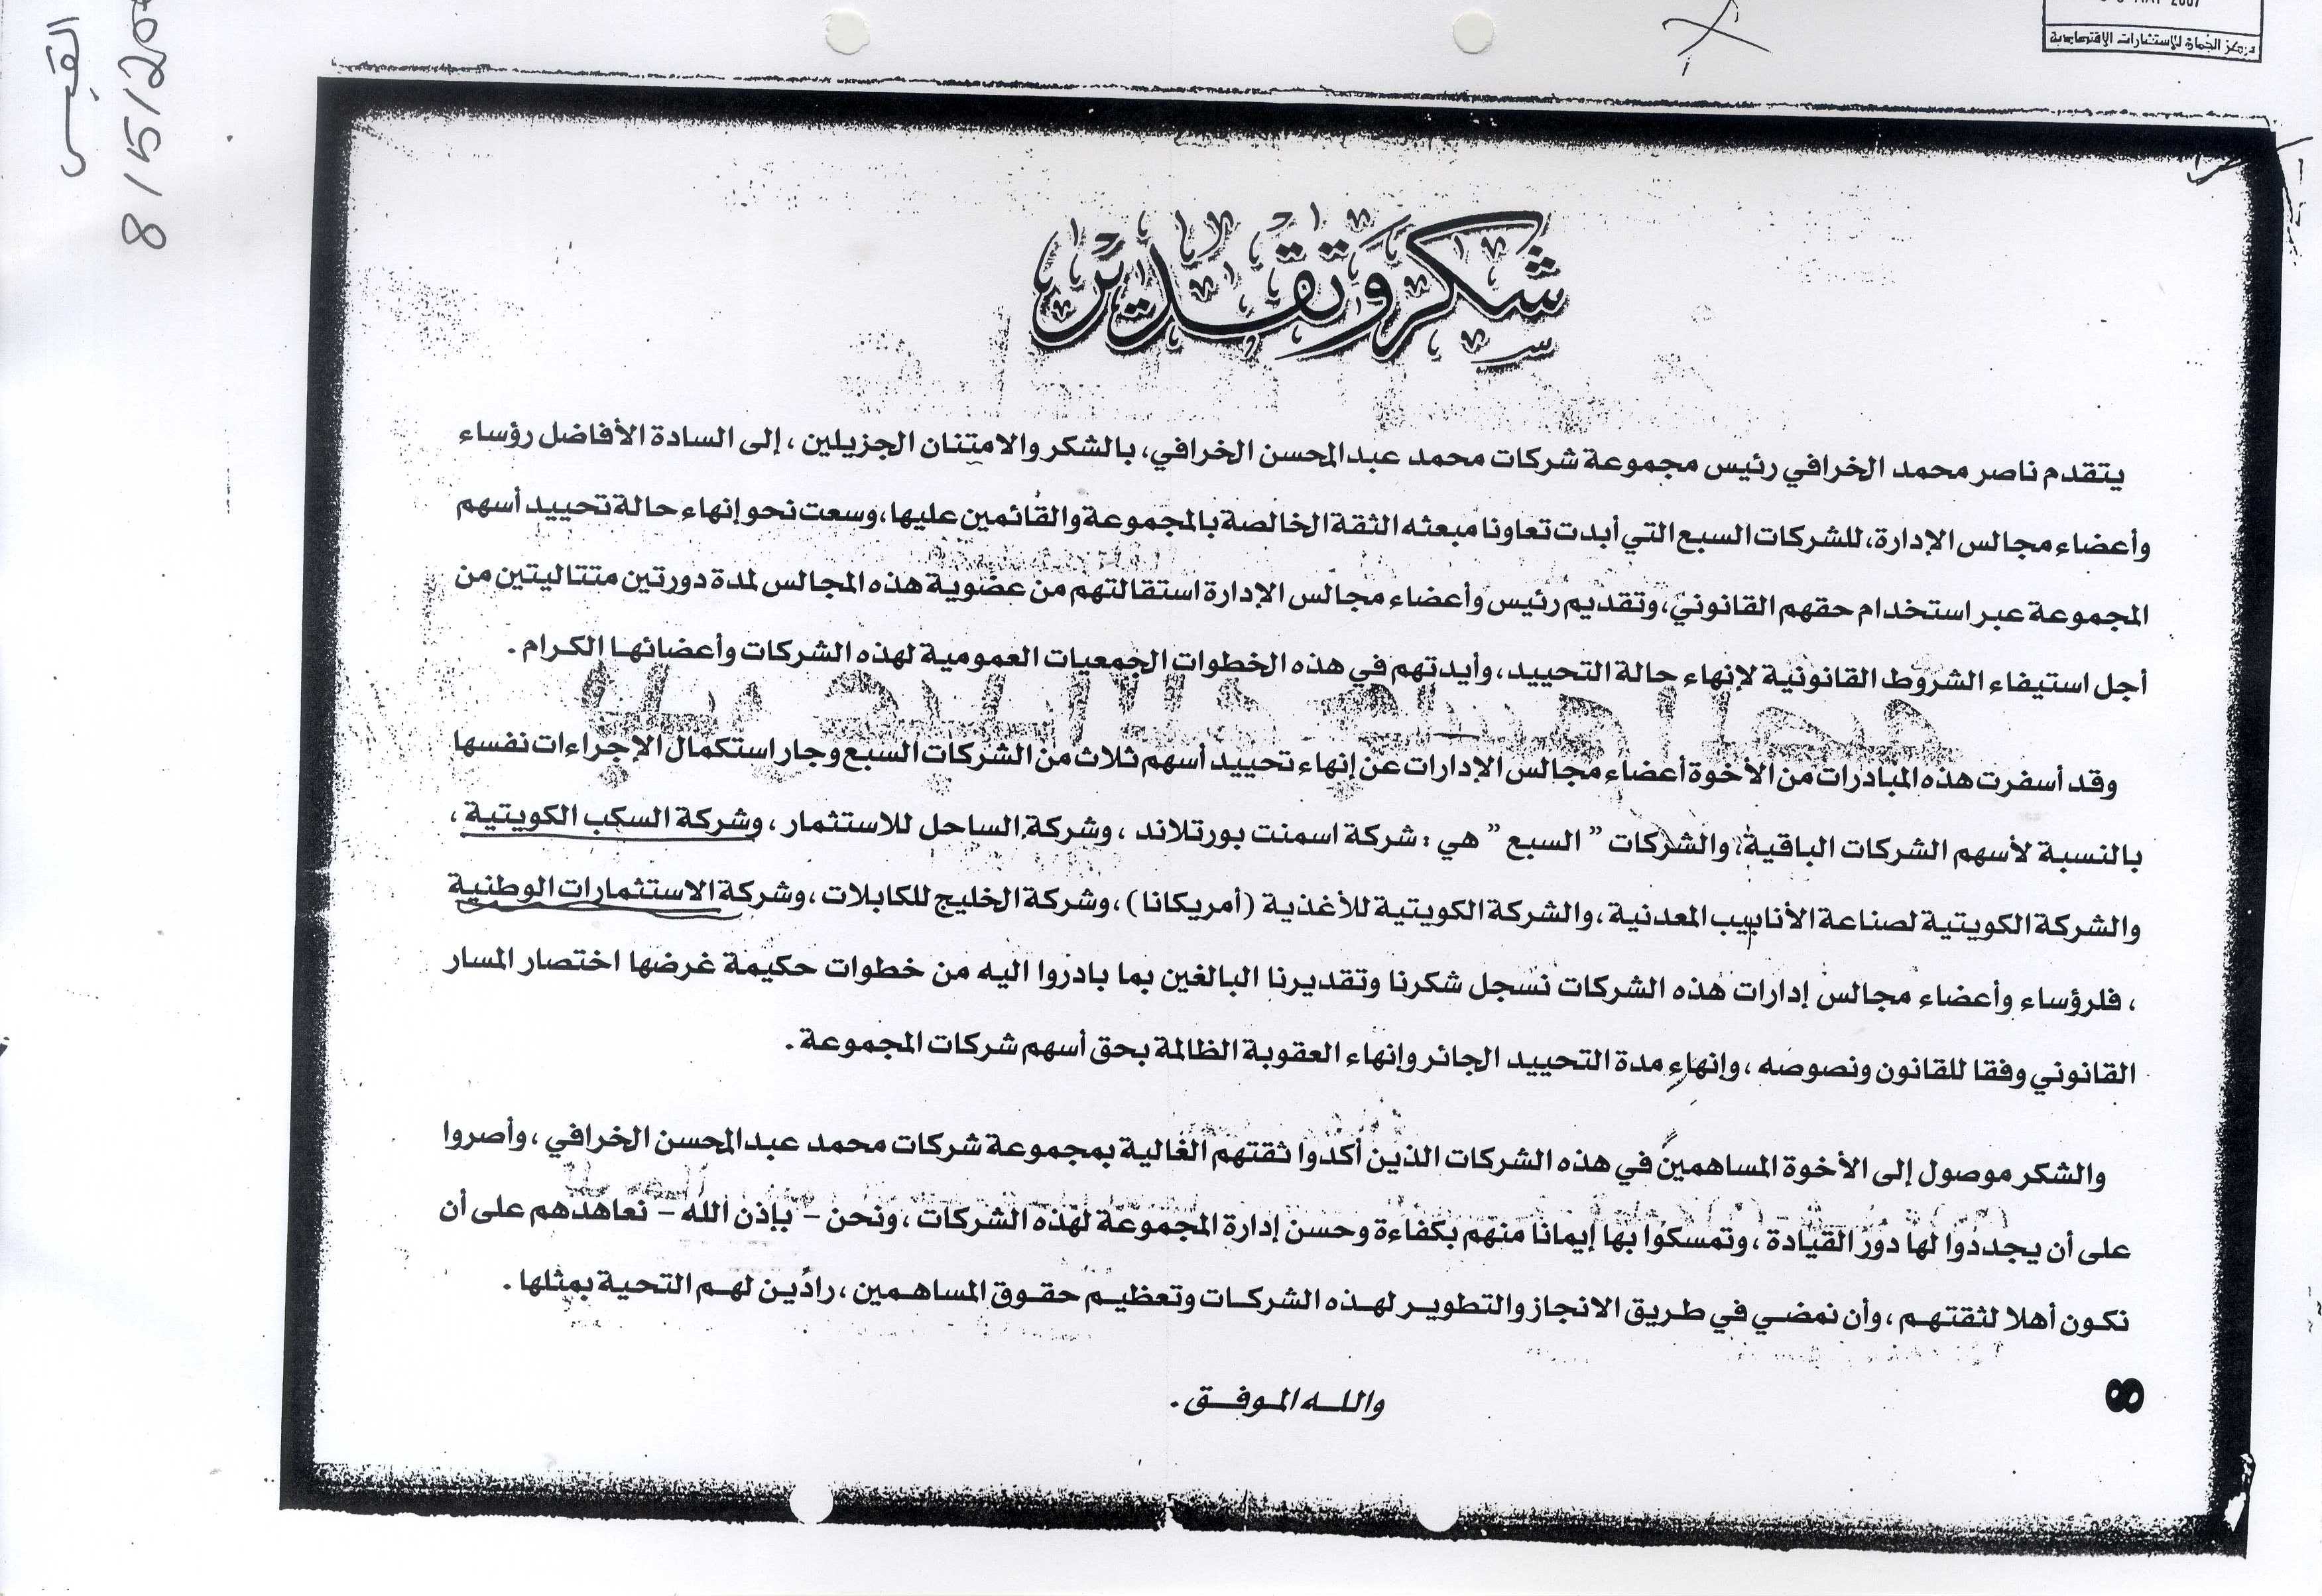 MAY 2007
مركز الجمان للإستشارات الإقتصادية
القبس
8/5/20
شكر وتقدير
يتقدم ناصر محمد الخرافي رئيس مجموعة شركات محمد عبدالمحسن الخرافي، بالشكر والامتنان الجزيلين ، إلى السادة الأفاضل رؤساء
وأعضاء مجالس الإدارة، للشركات السبع التي أبدت تعاونا مبعثه الثقة الخالصة بالمجموعة والقائمين عليها، وسعت نحو إنهاء حالة تحييد أسهم
المجموعة عبر استخدام حقهم القانوني، وتقديم رئيس وأعضاء مجالس الإدارة استقالتهم من عضوية هذه المجالس لمدة دورتين متتاليتين من
أجل استيفاء الشروط القانونية لإنهاء حالة التحييد، وأيدتهم في هذه الخطوات الجمعيات العمومية لهذه الشركات وأعضائها الكرام .
وقد أسفرت هذه المبادرات من الأخوة أعضاء مجالس الإدارات عن إنهاء تحييد أسهم ثلاث من الشركات السبع وجار استكمال الإجراءات نفسها
بالنسبة لأسهم الشركات الباقية، والشركات " السبع " هي : شركة اسمنت بورتلاند ، وشركة الساحل للاستثمار ، وشركة السكب الكويتية ،
والشركة الكويتية لصناعة الأنابيب المعدنية ، والشركة الكويتية للأغذية (أمريكانا) ، وشركة الخليج للكابلات ، وشركة الاستثمارات الوطنية
، فلرؤساء وأعضاء مجالس إدارات هذه الشركات نسجل شكرنا وتقديرنا البالغين بما بادروا اليه من خطوات حكيمة غرضها اختصار المسار
القانوني وفقا للقانون ونصوصه ، وإنهاء مدة التحييد الجائر وإنهاء العقوبة الظالمة بحق أسهم شركات المجموعة .
والشكر موصول إلى الأخوة المساهمين في هذه الشركات الذين أكدوا ثقتهم الغالية بمجموعة شركات محمد عبدالمحسن الخرافي ، وأصروا
على أن يجددوا لها دور القيادة ، وتمسكوا بها إيمانا منهم بكفاءة وحسن إدارة المجموعة لهذه الشركات ، ونحن - بإذن الله - نعاهدهم على أن
نكون أهلا لثقتهم ، وأن نمضي في طريق الانجاز والتطوير لهذه الشركات وتعظيم حقوق المساهمين ، رادين لهم التحية بمثلها .
والله الموفق .
8